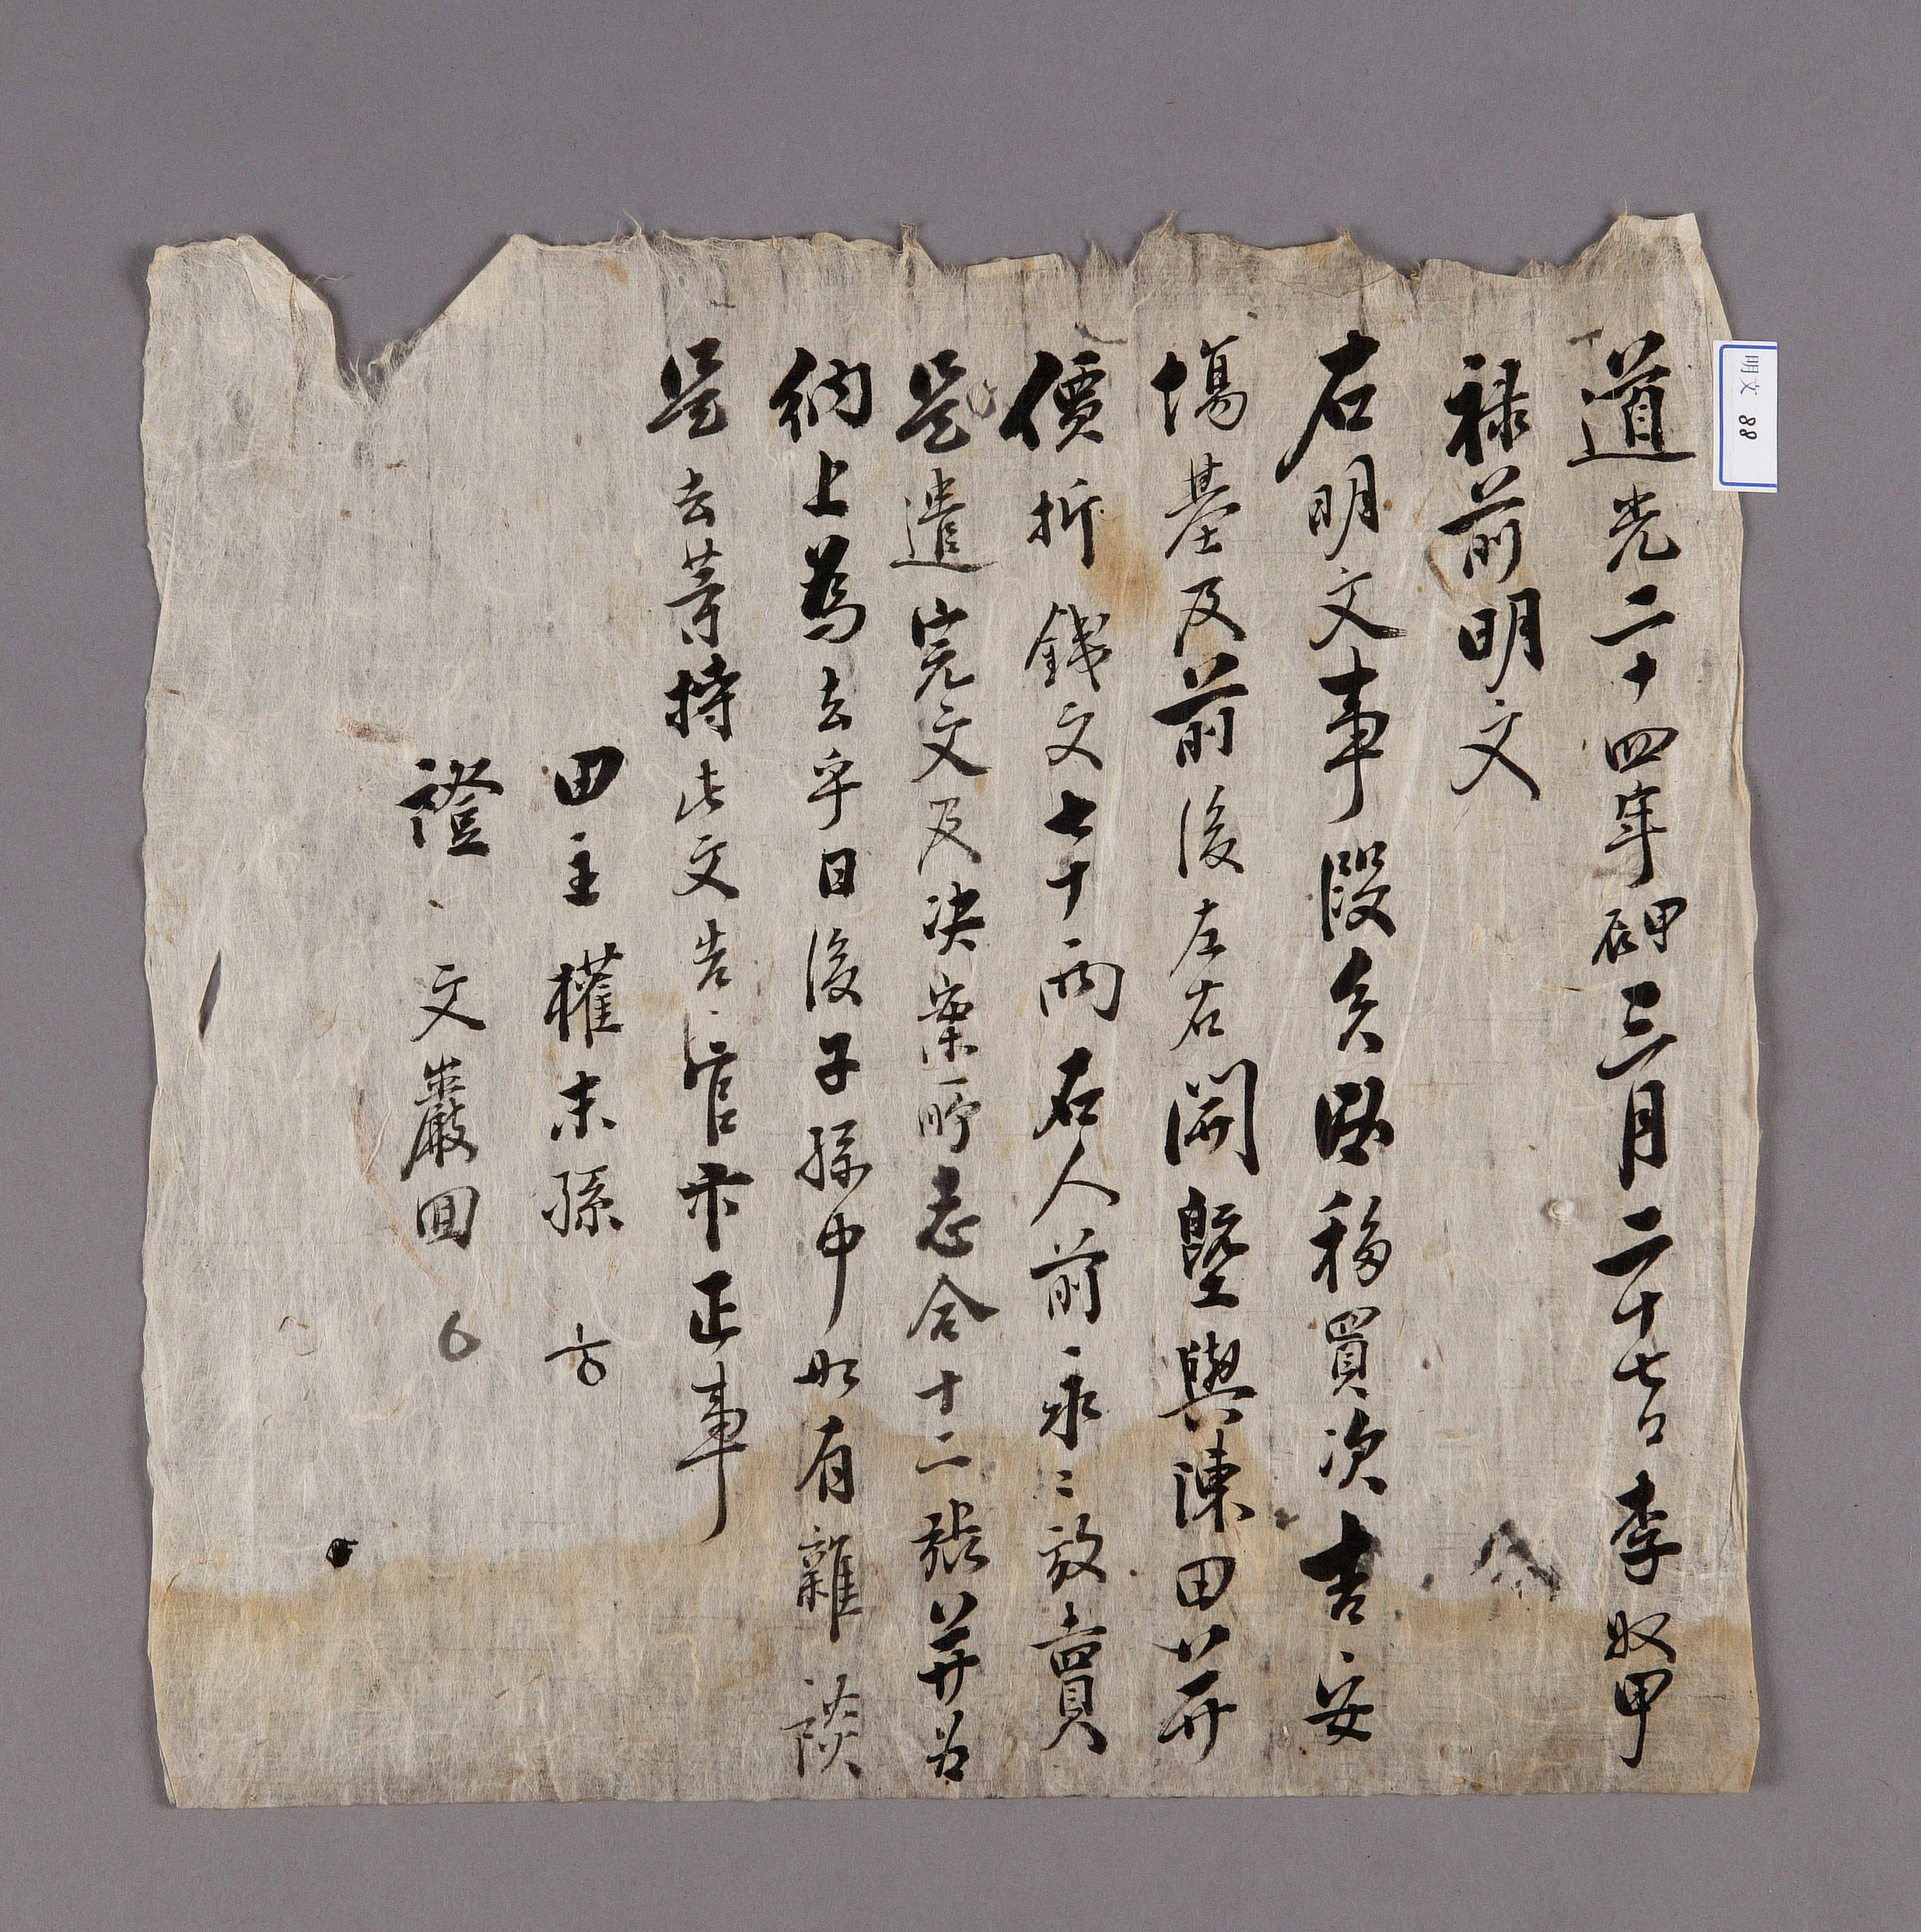 道光二十四年甲辰三月二十七日李奴甲
祿前明文
右明文事段矣畓移買次吉安
塲基及前後左右開墾與陳田幷
價折錢文七十兩右人前永〻放賣
是遣完文及决案所志合十二張幷爲
納上爲去乎日後子孫中如有雜談
是去等持此文告官卞正事
田主權末孫
證文巖回
明文 88